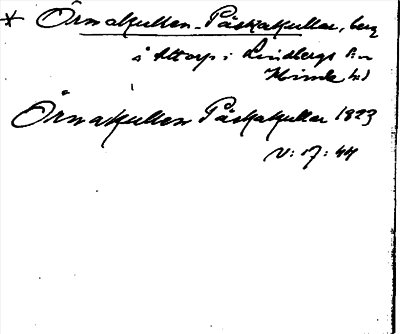 * Örnakullen-Påskakullar, berg
å Attorp i Lindbergs sn
Himle hd
Örnakullen Påskakullar 1823
V: 17: 44